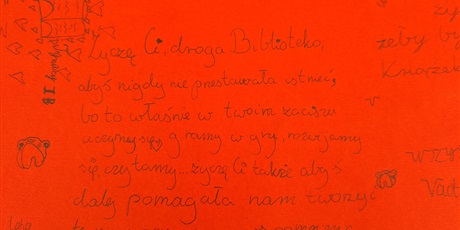 Życzę Ci, droga Biblioteko,
abyś nigdy nie przestawała istnieć,
bo to właśnie w twoim zaciszu
uczymy się, gramy w gry, rozwijamy
się, czytamy... życzę Ci także abyś
dalej pomagała nam tworzyć
żeby by
Książek